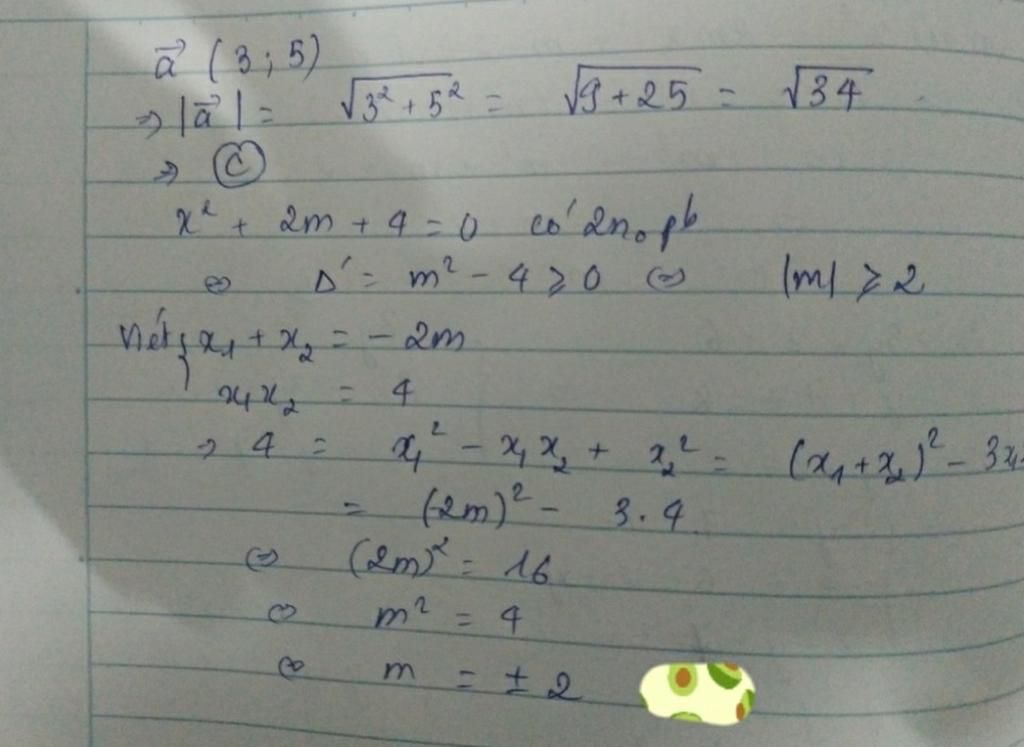 a⃗ (3; 5)
⇒ |a⃗| = √(3² + 5²) = √(9 + 25) = √34
⇒ Ⓒ
x² + 2m + 4 = 0 có 2n₀ pb
⇔ Δ' = m² - 4 ⩾ 0 ⇔ |m| ⩾ 2
Viét { x₁ + x₂ = - 2m
x₁x₂ = 4
→ 4 = x₁² - x₁x₂ + x₂² = (x₁ + x₂)² - 3x₁
= (-2m)² - 3.4
⇔ (2m)² = 16
⇔ m² = 4
⇔ m = ± 2